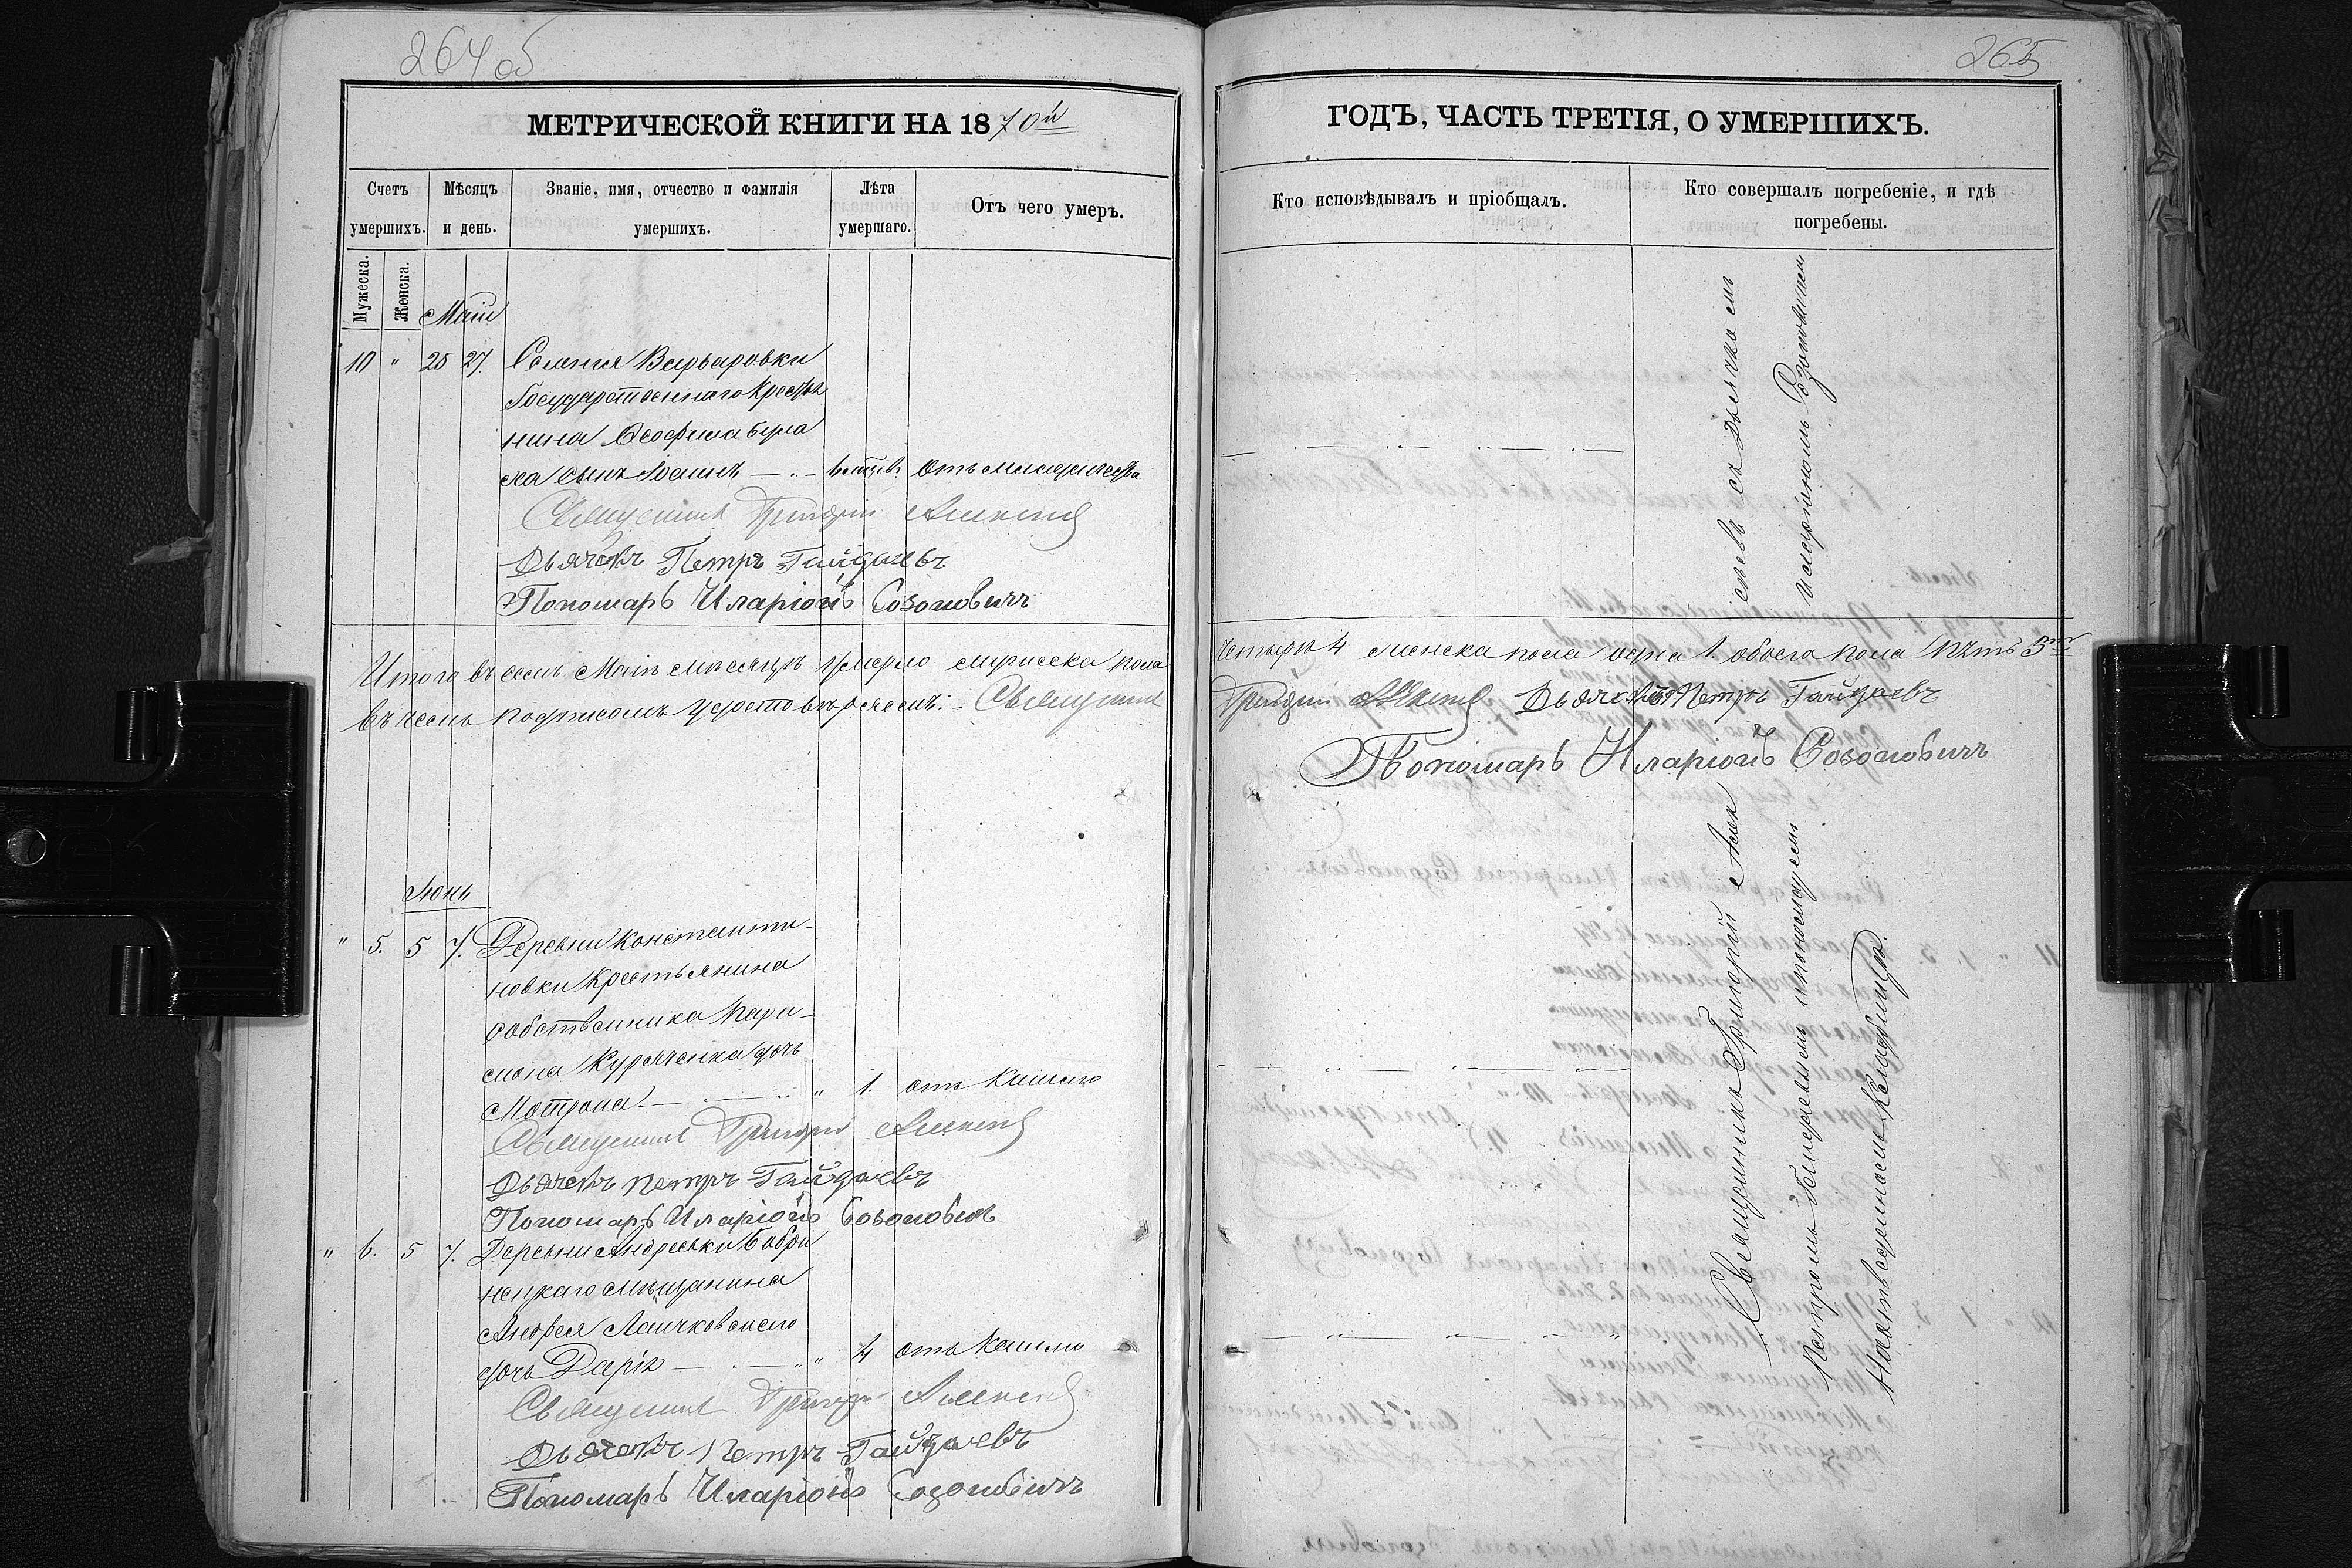 264 об
МЕТРИЧЕСКОЙ КНИГИ НА 1870й
Счетъ умершихъ.
Мѣсяцъ и день.
Званіе, имя, отчество и фамилія умершихъ.
Лѣта умершаго.
Отъ чего умеръ.
Мужеска.
Женска.
Маій
10 " 25 27. Селенія Варваровки
Государственнаго Крестья
нина Ѳеофила
сынъ Іоаннъ 6 мцев. отъ младенчества
Священникъ Григорій
Дьячекъ Петръ Гайдаевъ
Пономарь Иларіонъ Созоновичъ
Итого въ семъ Маіѣ мѣсяцѣ умерло мужеска пола
въ чемъ подписомъ удостовѣряемъ: Священникъ
Іюнь
" 5. 5 7. Деревни Константи-
новки Крестьянина
собственника Пари-
мона Курѧченка дочь
Мотрона " 1. отъ кашлю
Священникъ Григорій
Дьячекъ Петръ Гайдаевъ
Пономарь Иларіонъ Созоновичъ
" 6. 5 7. Деревни Андреевки Бобри
нецкаго мѣщанина
Андрея
дочь Дарія " 4 отъ кашлю
Священникъ Григорій
Дьячекъ Петръ Гайдаевъ
Пономарь Иларіонъ Созоновичъ
265
ГОДЪ, ЧАСТЬ ТРЕТІЯ, О УМЕРШИХЪ.
Кто исповѣдывалъ и пріобщалъ.
Кто совершалъ погребеніе, и гдѣ погребены.
сѣевъ съ Дьячкомъ
и Иларіономъ Созоновичем
четыре 4 женска пола одна 1. обоего пола пять 5ть
Григорій Дьячекъ Петръ Гайдаевъ
Пономарь Иларіонъ Созоновичъ
Священникъ Григорій Алек
Петромъ Гайдаевымъ и пономаремъ
На отведенномъ кладбищѣ.